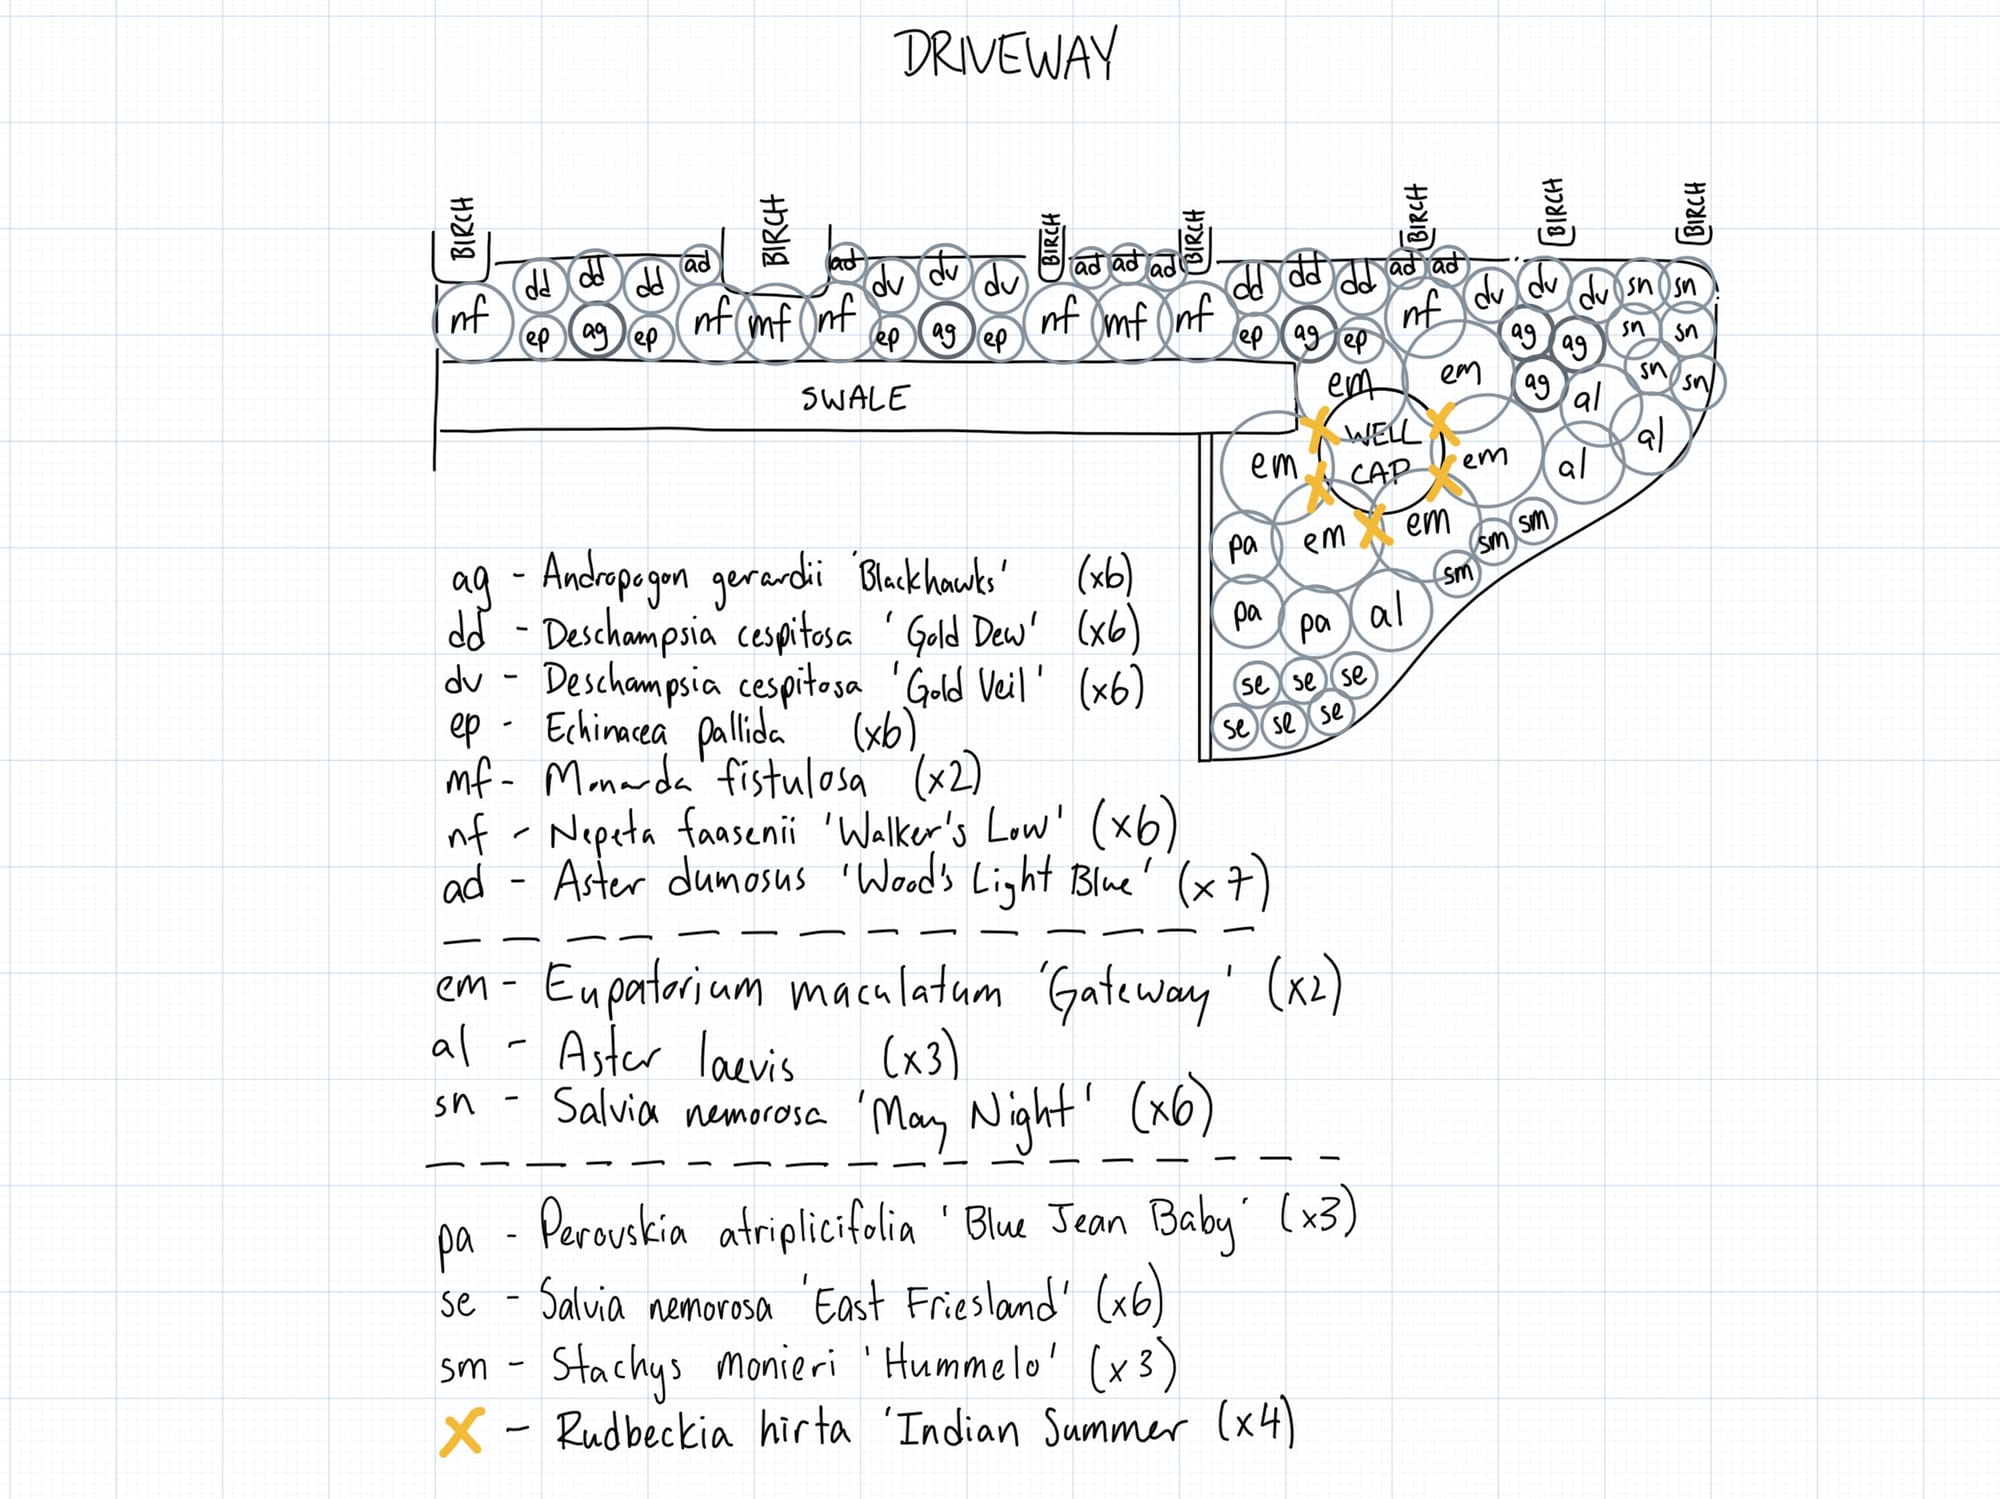 DRIVEWAY
BIRCH BIRCH BIRCH BIRCH BIRCH BIRCH BIRCH
dd dd dd ad ad dv dv dv ad ad ad dd dd dd ad ad dv dv dv sn sn
nf ep ag ep nf mf nf ep ag ep nf mf nf ep ag ep nf ag ag sn sn
em em ag al sn sn
SWALE
WELL
CAP
em em al al
pa em em sm sm
sm
pa pa al
se se se
se se se
ag - Andropogon gerardii 'Blackhawks' (x6)
dd - Deschampsia cespitosa 'Gold Dew' (x6)
dv - Deschampsia cespitosa 'Gold Veil' (x6)
ep - Echinacea pallida (x6)
mf - Monarda fistulosa (x2)
nf - Nepeta faasenii 'Walker's Low' (x6)
ad - Aster dumosus 'Wood's Light Blue' (x7)
em - Eupatorium maculatum 'Gateway' (x2)
al - Aster laevis (x3)
sn - Salvia nemorosa 'May Night' (x6)
pa - Perovskia atriplicifolia 'Blue Jean Baby' (x3)
se - Salvia nemorosa 'East Friesland' (x6)
sm - Stachys monieri 'Hummelo' (x3)
X - Rudbeckia hirta 'Indian Summer (x4)